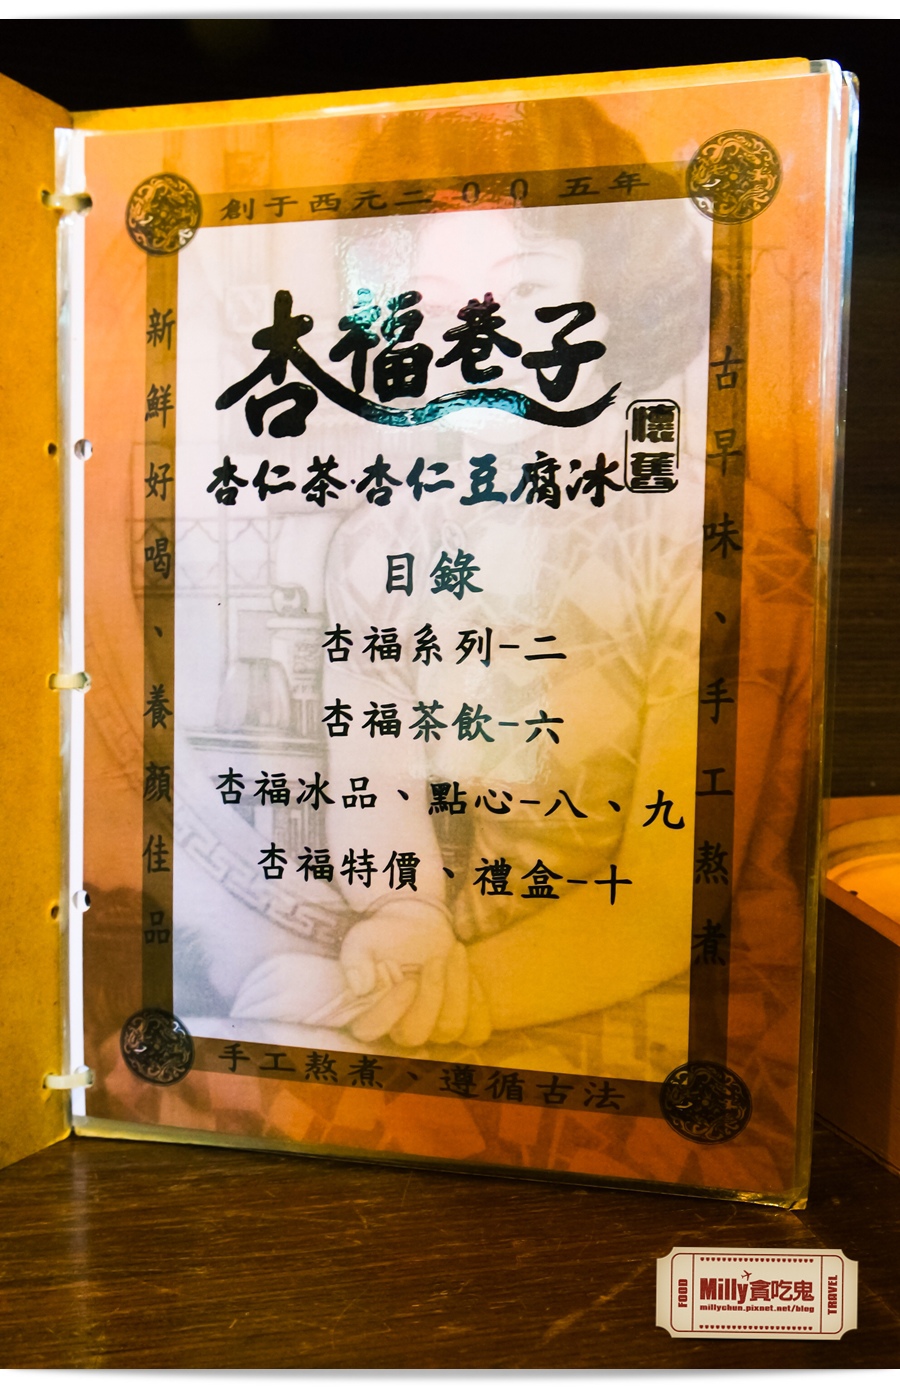 創于西元二００五年
杏福巷子
懷舊
杏仁茶·杏仁豆腐冰
目錄
杏福系列-二
杏福茶飲-六
杏福冰品、點心-八、九
杏福特價、禮盒-十
新鮮好喝、養顏佳品
古早味、手工熬煮
手工熬煮、遵循古法
FOOD
Milly貪吃鬼
millychun.pixnet.net/blog
TRAVEL